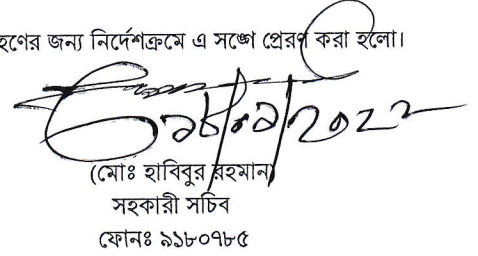 হণের জন্য নির্দেশক্রমে এ সঙ্গে প্রেরণ করা হলো।
(মোঃ হাবিবুর রহমান)
সহকারী সচিব
ফোনঃ ৯১৮০৭৮৫